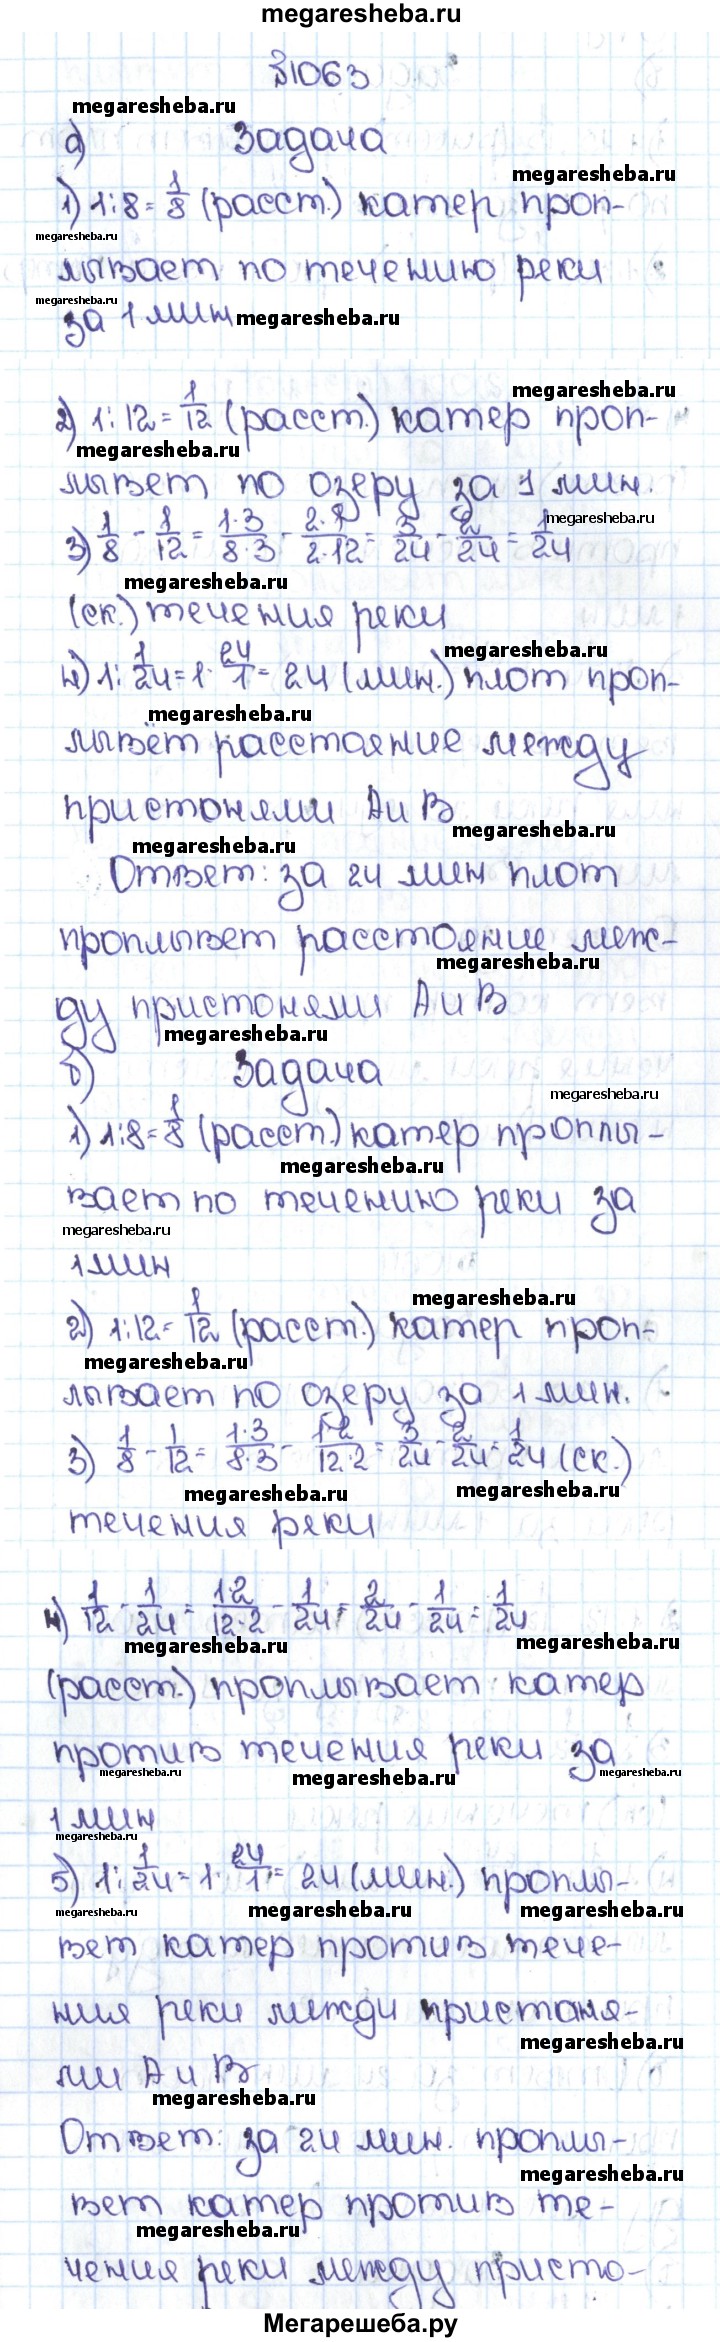 megaresheba.ru
№1063
megaresheba.ru
а) Задача
megaresheba.ru
1) 1:8=1/8 (расст.) катер проп-
megaresheba.ru
лывает по течению реки
megaresheba.ru
за 1 мин megaresheba.ru
megaresheba.ru
2) 1:12=1/12 (расст.) катер проп-
megaresheba.ru
лывет по озеру за 1 мин.
megaresheba.ru
3) 1/8 - 1/12 = 1·3/8·3 - 2·1/2·12 = 3/24 - 2/24 = 1/24
megaresheba.ru
(ск.) течения реки
megaresheba.ru
4) 1:1/24=1·24/1=24 (мин.) плот проп-
megaresheba.ru
лывёт расстояние между
пристонями А и В
megaresheba.ru
megaresheba.ru
Ответ: за 24 мин плот
проплывет расстояние меж-
megaresheba.ru
ду пристонями А и В
megaresheba.ru
б) Задача
megaresheba.ru
1) 1:8=1/8 (расст.) катер проплы-
megaresheba.ru
вает по течению реки за
megaresheba.ru
1 мин
megaresheba.ru
2) 1:12=1/12 (расст.) катер проп-
megaresheba.ru
лывает по озеру за 1 мин.
3) 1/8 - 1/12 = 1·3/8·3 - 1·2/12·2 = 3/24 - 2/24 = 1/24 (ск.)
megaresheba.ru megaresheba.ru
течения реки
4) 1/12 - 1/24 = 1·2/12·2 - 1/24 = 2/24 - 1/24 = 1/24
megaresheba.ru megaresheba.ru
(расст.) проплывает катер
против течения реки за
megaresheba.ru megaresheba.ru megaresheba.ru
1 мин
megaresheba.ru
5) 1:1/24=1·24/1=24 (мин.) проплы-
megaresheba.ru megaresheba.ru megaresheba.ru
вет катер против тече-
ния реки между пристоня-
megaresheba.ru
ми А и В
megaresheba.ru
Ответ: за 24 мин. проплы-
megaresheba.ru
вет катер против те-
megaresheba.ru
чения реки между присто-
Мегарешеба.ру